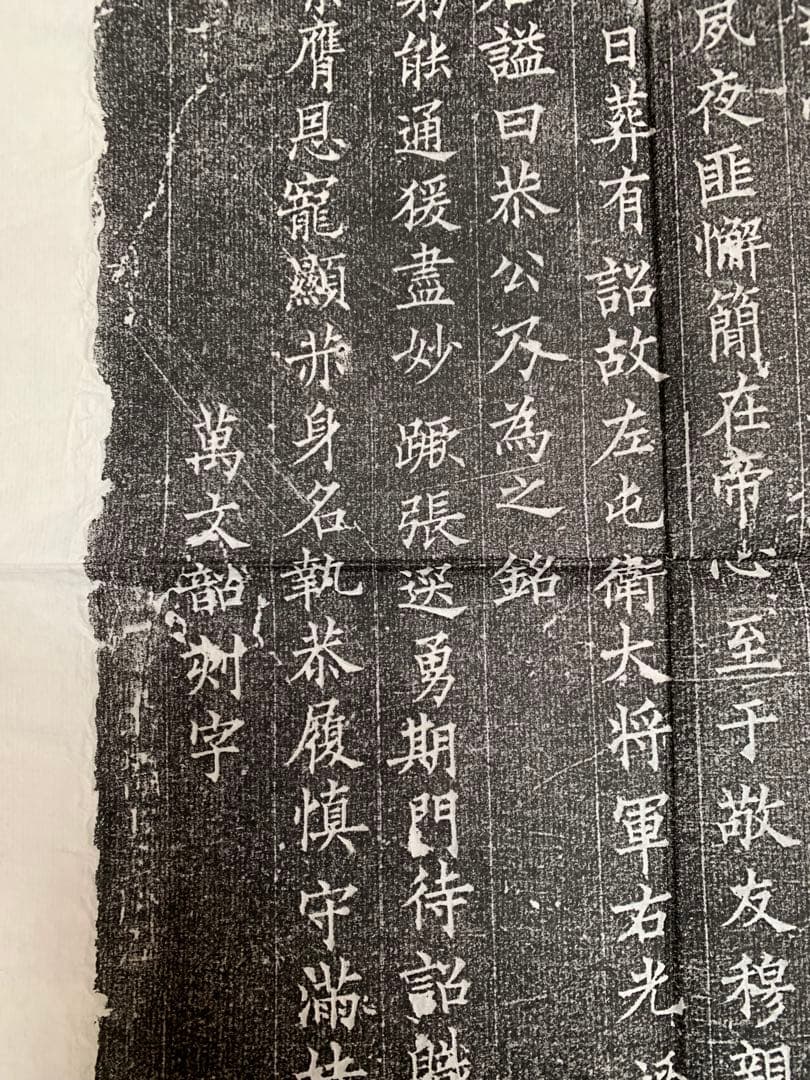 夙夜匪懈簡在帝心至于敬友穆親
日葬有詔故左屯衛大将軍右光
謚曰恭公乃為之銘
能通猨盡妙蹶張選勇期門待詔職
膺恩寵顯身名執恭履慎守滿
萬文韶刻字